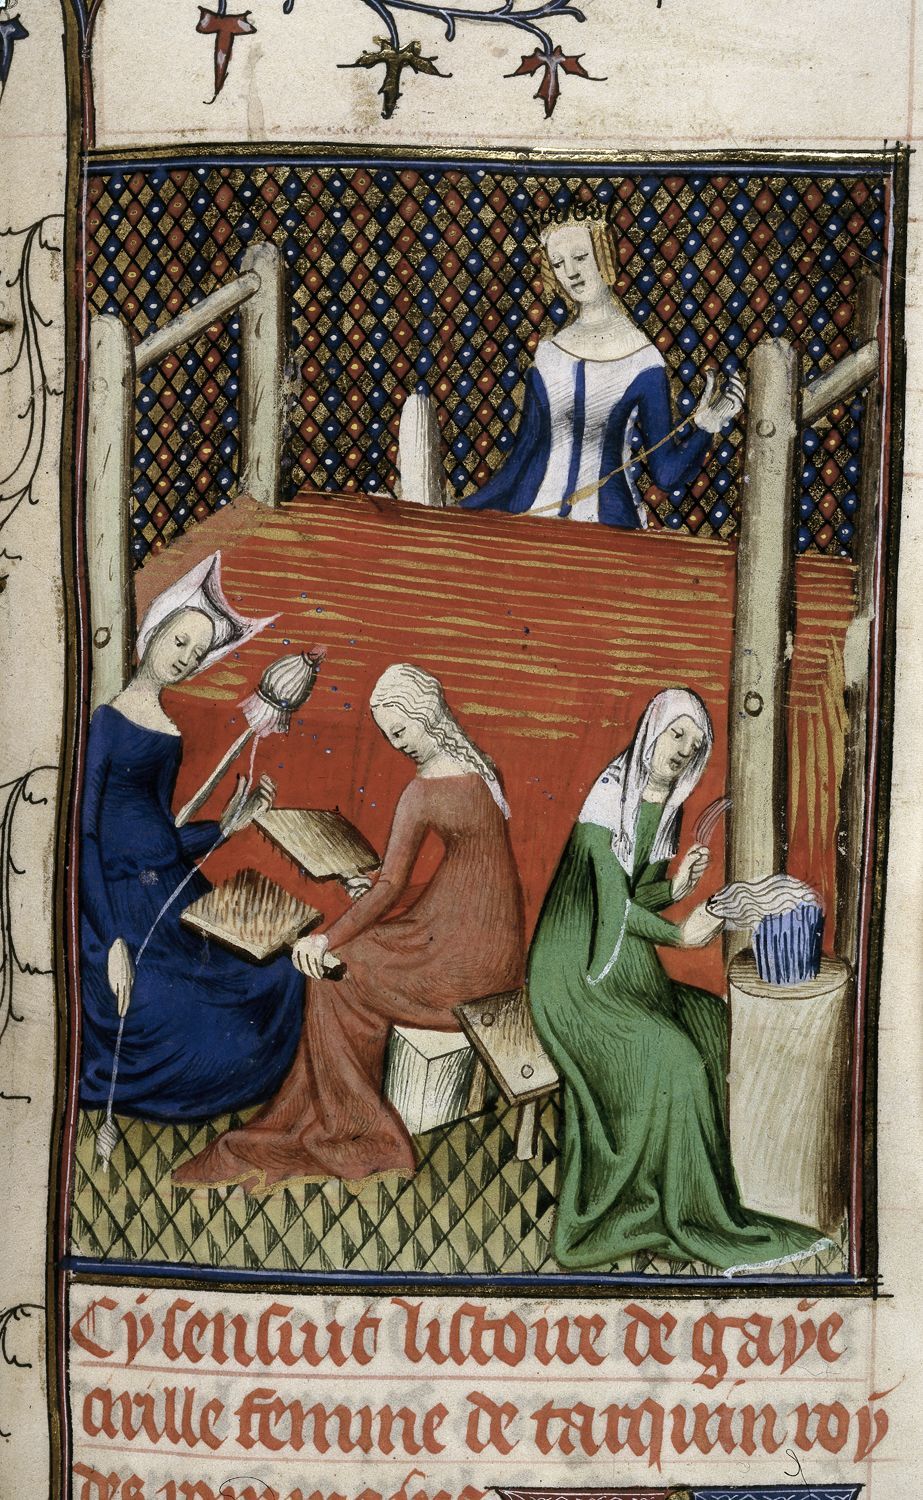 Cy sensuit listoire de gaye
cirille femme de tarquin roy
des